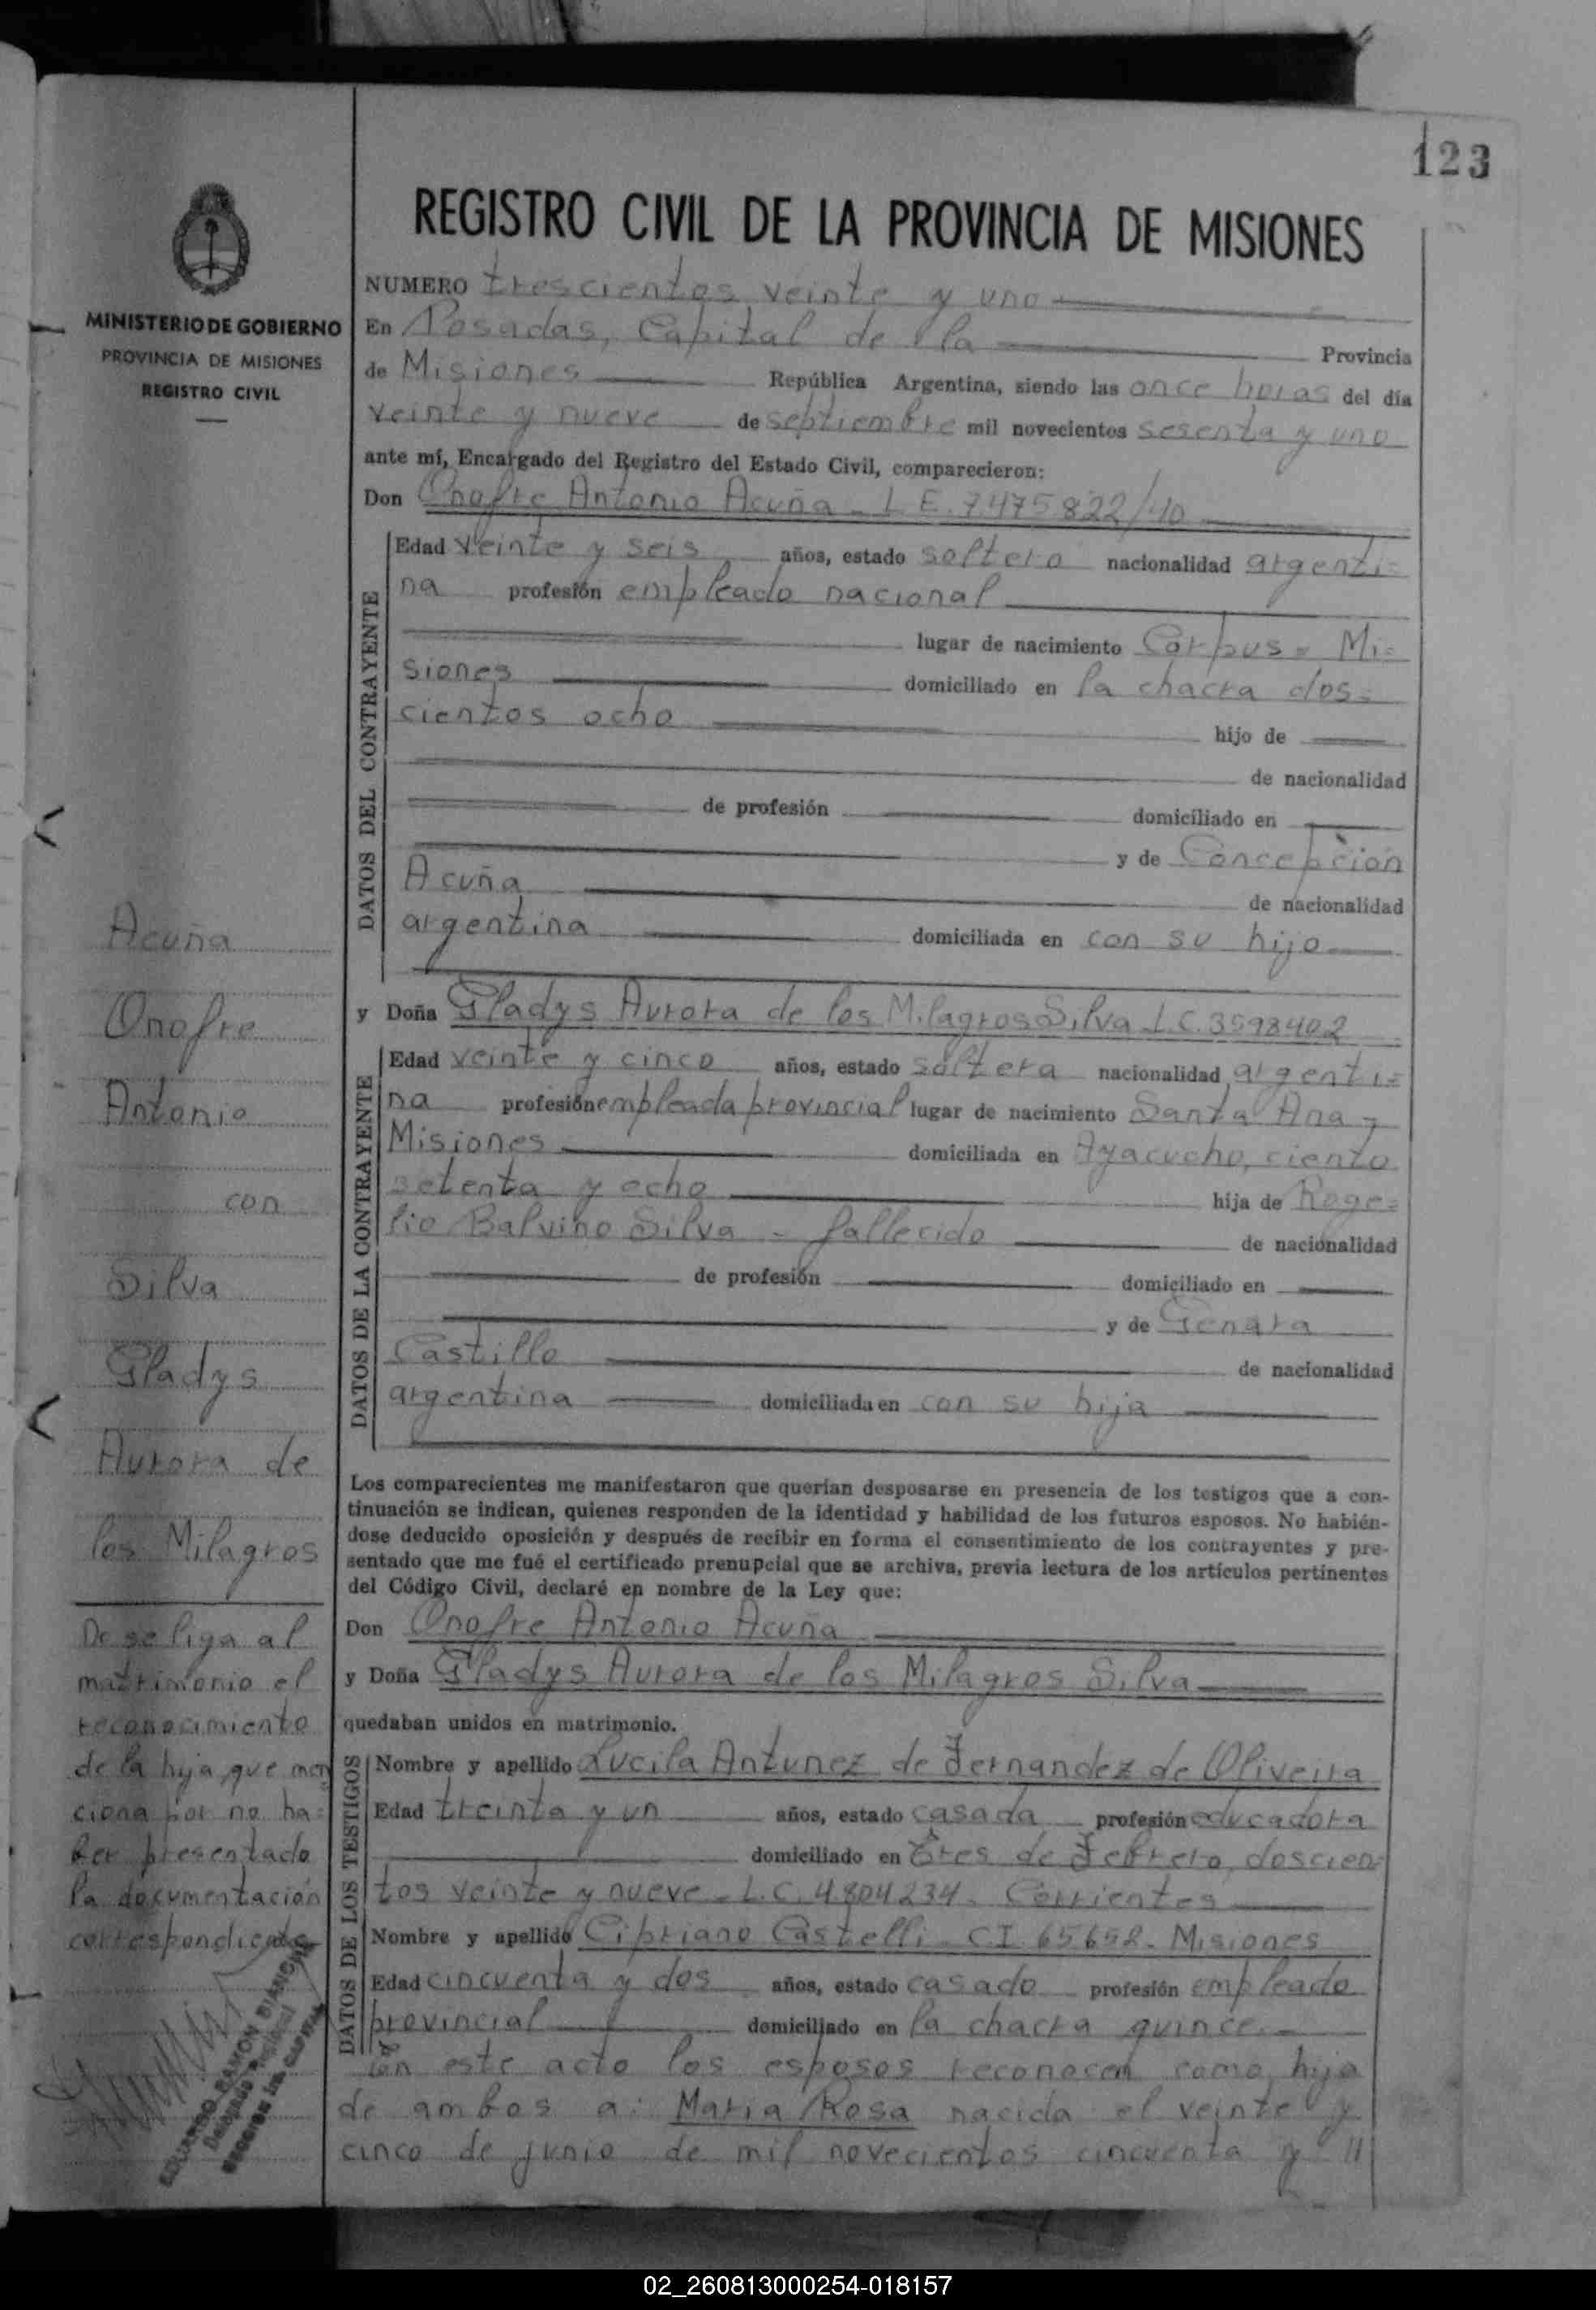 123
REGISTRO CIVIL DE LA PROVINCIA DE MISIONES
NUMERO trescientos veinte y uno
En Posadas, Capital de la Provincia
de Misiones República Argentina, siendo las once horas del día
veinte y nueve de septiembre mil novecientos sesenta y uno
ante mí, Encargado del Registro del Estado Civil, comparecieron:
Don Onofre Antonio Acuña - L E. 7.475.822/40
DATOS DEL CONTRAYENTE
Edad veinte y seis años, estado soltero nacionalidad argenti=
na profesión empleado nacional
lugar de nacimiento Corpus = Mi=
siones domiciliado en la chacra dos=
cientos ocho hijo de
de nacionalidad
de profesión domiciliado en
y de Concepción
Acuña de nacionalidad
argentina domiciliada en con su hijo
y Doña Gladys Aurora de los Milagros Silva L.C. 3598402
DATOS DE LA CONTRAYENTE
Edad veinte y cinco años, estado soltera nacionalidad argenti=
na profesión empleada provincial lugar de nacimiento Santa Ana -
Misiones domiciliada en Ayacucho, ciento
setenta y ocho hija de Roge=
lio Balvino Silva - fallecido de nacionalidad
de profesión domiciliado en
y de Genara
Castillo de nacionalidad
argentina domiciliada en con su hija
Los comparecientes me manifestaron que querían desposarse en presencia de los testigos que a con-
tinuación se indican, quienes responden de la identidad y habilidad de los futuros esposos. No habién-
dose deducido oposición y después de recibir en forma el consentimiento de los contrayentes y pre-
sentado que me fué el certificado prenupcial que se archiva, previa lectura de los artículos pertinentes
del Código Civil, declaré en nombre de la Ley que:
Don Onofre Antonio Acuña
y Doña Gladys Aurora de los Milagros Silva
quedaban unidos en matrimonio.
DATOS DE LOS TESTIGOS
Nombre y apellido Lucila Antunez de Fernandez de Oliveira
Edad treinta y un años, estado casada profesión educadora
domiciliado en Tres de Febrero, doscien
tos veinte y nueve - L.C. 4.804.234. Corrientes
Nombre y apellido Cipriano Castelli - C I 65652 - Misiones
Edad cincuenta y dos años, estado casado profesión empleado
provincial domiciliado en la chacra quince.
En este acto los esposos reconocen como hija
de ambos a: Maria Rosa nacida el veinte y
cinco de junio de mil novecientos cincuenta y //
MINISTERIO DE GOBIERNO
PROVINCIA DE MISIONES
REGISTRO CIVIL
Acuña
Onofre
Antonio
con
Silva
Gladys
Aurora de
los Milagros
De se liga al
matrimonio el
reconocimiento
de la hija que men
ciona por no ha=
ber presentado
la documentación
correspondiente
EDUARDO RAMON
Delegado
SECCION
02_260813000254-018157